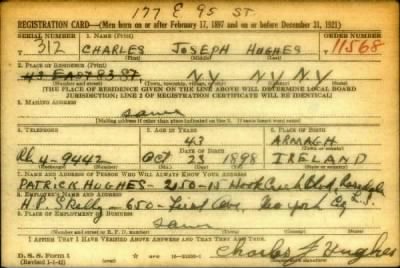 177 E 95 ST.
REGISTRATION CARD—(Men born on or after February 17, 1897 and on or before December 31, 1921)
SERIAL NUMBER 1. NAME (Print) ORDER NUMBER
312 CHARLES JOSEPH HUGHES 11568
(First) (Middle) (Last)
2. PLACE OF RESIDENCE (Print)
43 EAST 83 ST N.Y. N.Y. N.Y.
(Number and street) (Town, township, village, or city) (County) (State)
[THE PLACE OF RESIDENCE GIVEN ON THE LINE ABOVE WILL DETERMINE LOCAL BOARD
JURISDICTION; LINE 2 OF REGISTRATION CERTIFICATE WILL BE IDENTICAL]
3. MAILING ADDRESS
same
[Mailing address if other than place indicated on line 2. If same insert word same]
4. TELEPHONE 5. AGE IN YEARS 6. PLACE OF BIRTH
43 ARMAGH
DATE OF BIRTH
4-9442 Oct 23 1898 IRELAND
7. NAME AND ADDRESS OF PERSON WHO WILL ALWAYS KNOW YOUR ADDRESS
PATRICK HUGHES - Hook Creek Blvd, Rosedale
8. EMPLOYER'S NAME AND ADDRESS
650 - Ave New York City
9. PLACE OF EMPLOYMENT OR BUSINESS
same
(Number and street or R. F. D. number) (Town) (County) (State)
I AFFIRM THAT I HAVE VERIFIED ABOVE ANSWERS AND THAT THEY ARE TRUE.
D. S. S. Form 1
(Revised 1-1-42) (over) 16-21630-1 Charles J. Hughes